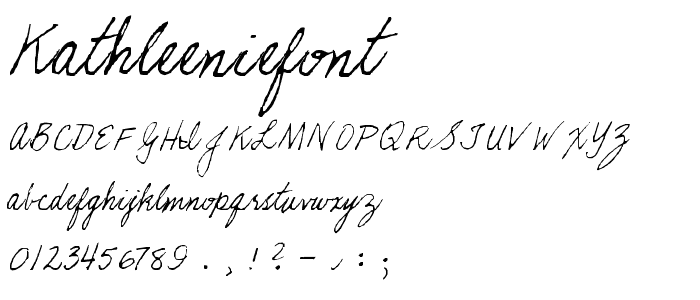 Kathleeniefont
ABCDEFGHIJKLMNOPQRSTUVWXYZ
abcdefghijklmnopqrstuvwxyz
0123456789 . , ! ? - , : ;